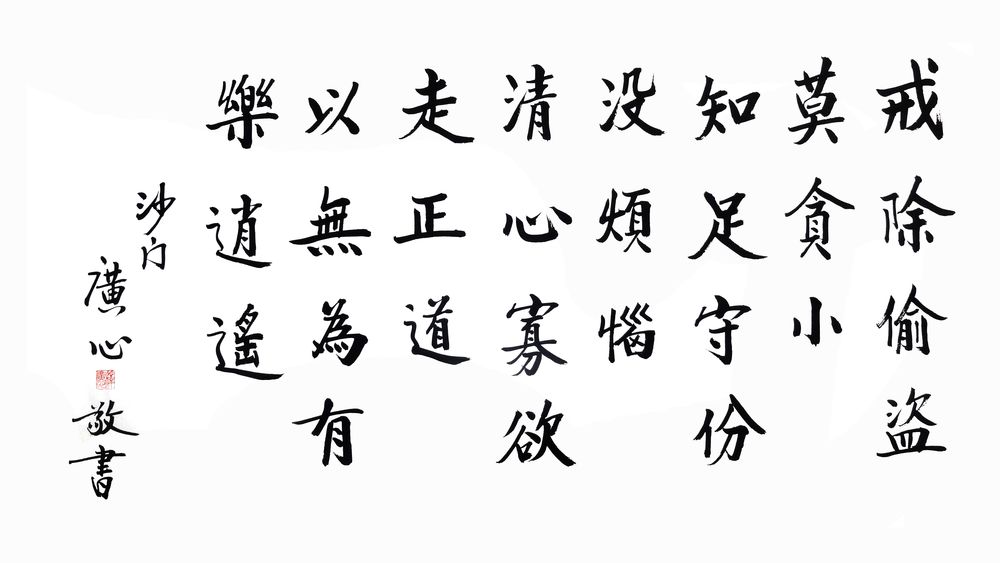 戒除偷盜
莫貪小
知足守份
没煩惱
清心寡欲
走正道
以無為有
樂逍遙
沙门
廣心
敬書